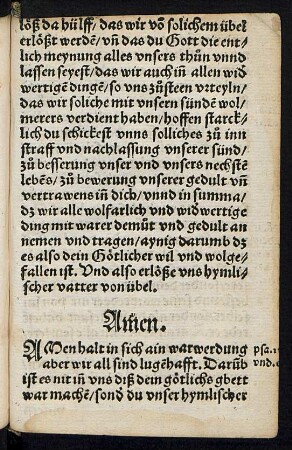 löß da hülff/ das wir vō solichem übel
erlößt werdē/ vñ das du Gott die ent⸗
lich meynung alles vnsers thūn vnnd
lassen seyest/ das wir auch iñ allen wid
wertigē dingē/ so vns zūsteen vrteyln/
das wir soliche mit vnsern sündē wol⸗
merers verdient haben/ hoffen starck⸗
lich du schickest vnns solliches zū inn
straff vnd nachlassung vnserer sünd/
zū besserung vnser vnd vnsers nechstē
lebēs/ zū bewerung vnserer gedult vñ
vertrawens iñ dich/ vnnd in summa/
dz wir alle wolfarlich vnd widwertige
ding mit warer demūt vnd gedult an
nemen vnd tragen/ aynig darumb dz
es also dein Götlicher wil vnd wolge⸗
fallen ist. Vnd also erlöße vns hymli⸗
scher vatter von übel.
Amen.
AMen halt in sich ain watwerdung
psa.
aber wir all sind lugēhafft. Darūb
vnd.
ist es nit iñ vns diß dein götlichs gbett
war machē/ sond du vnser hymlischer